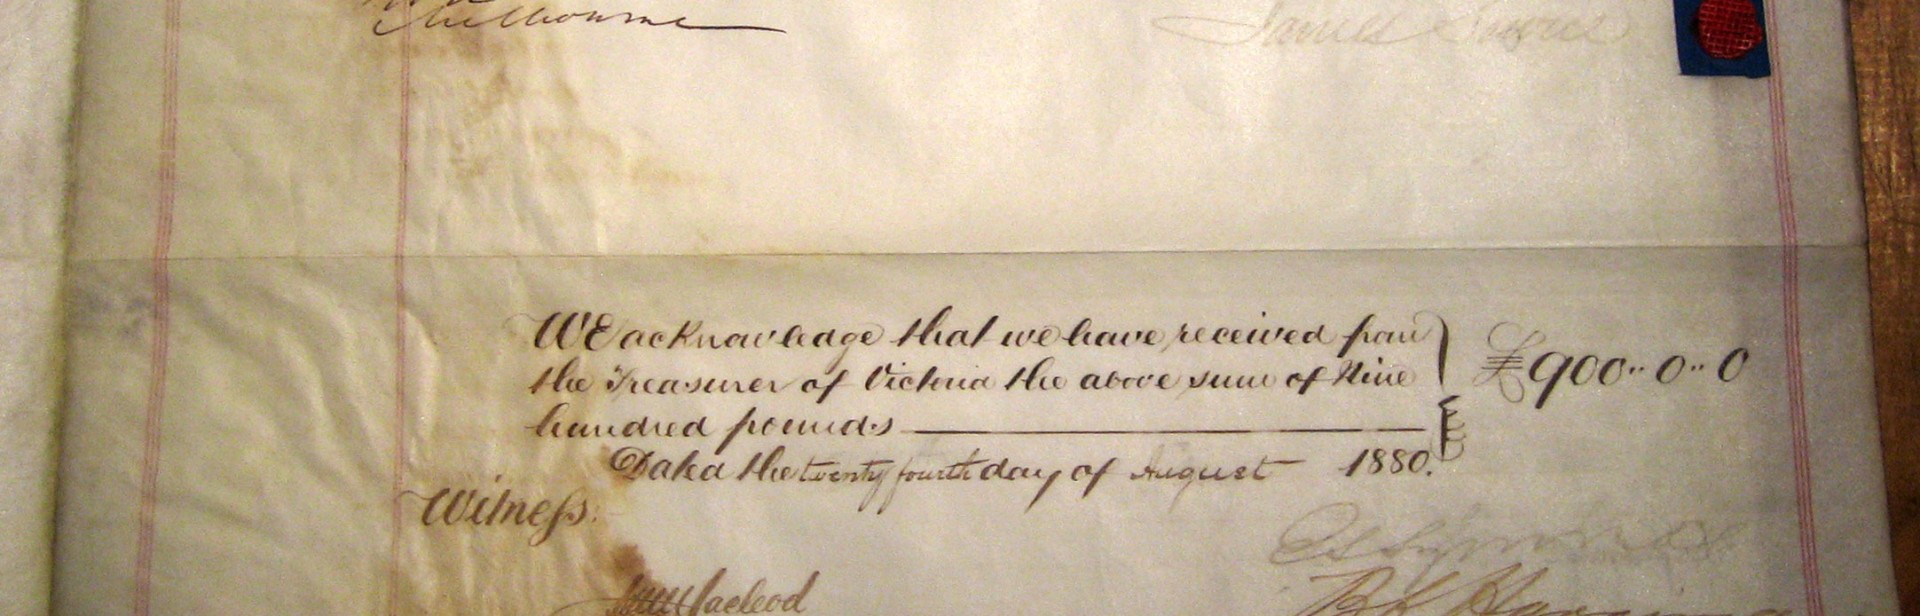 Melbourne
James
WE acknowledge that we have received from
the Treasurer of Victoria the above sum of Nine
hundred pounds
£900‥0‥0
Dated the twenty fourth day of August 1880.
Witness.
Macleod